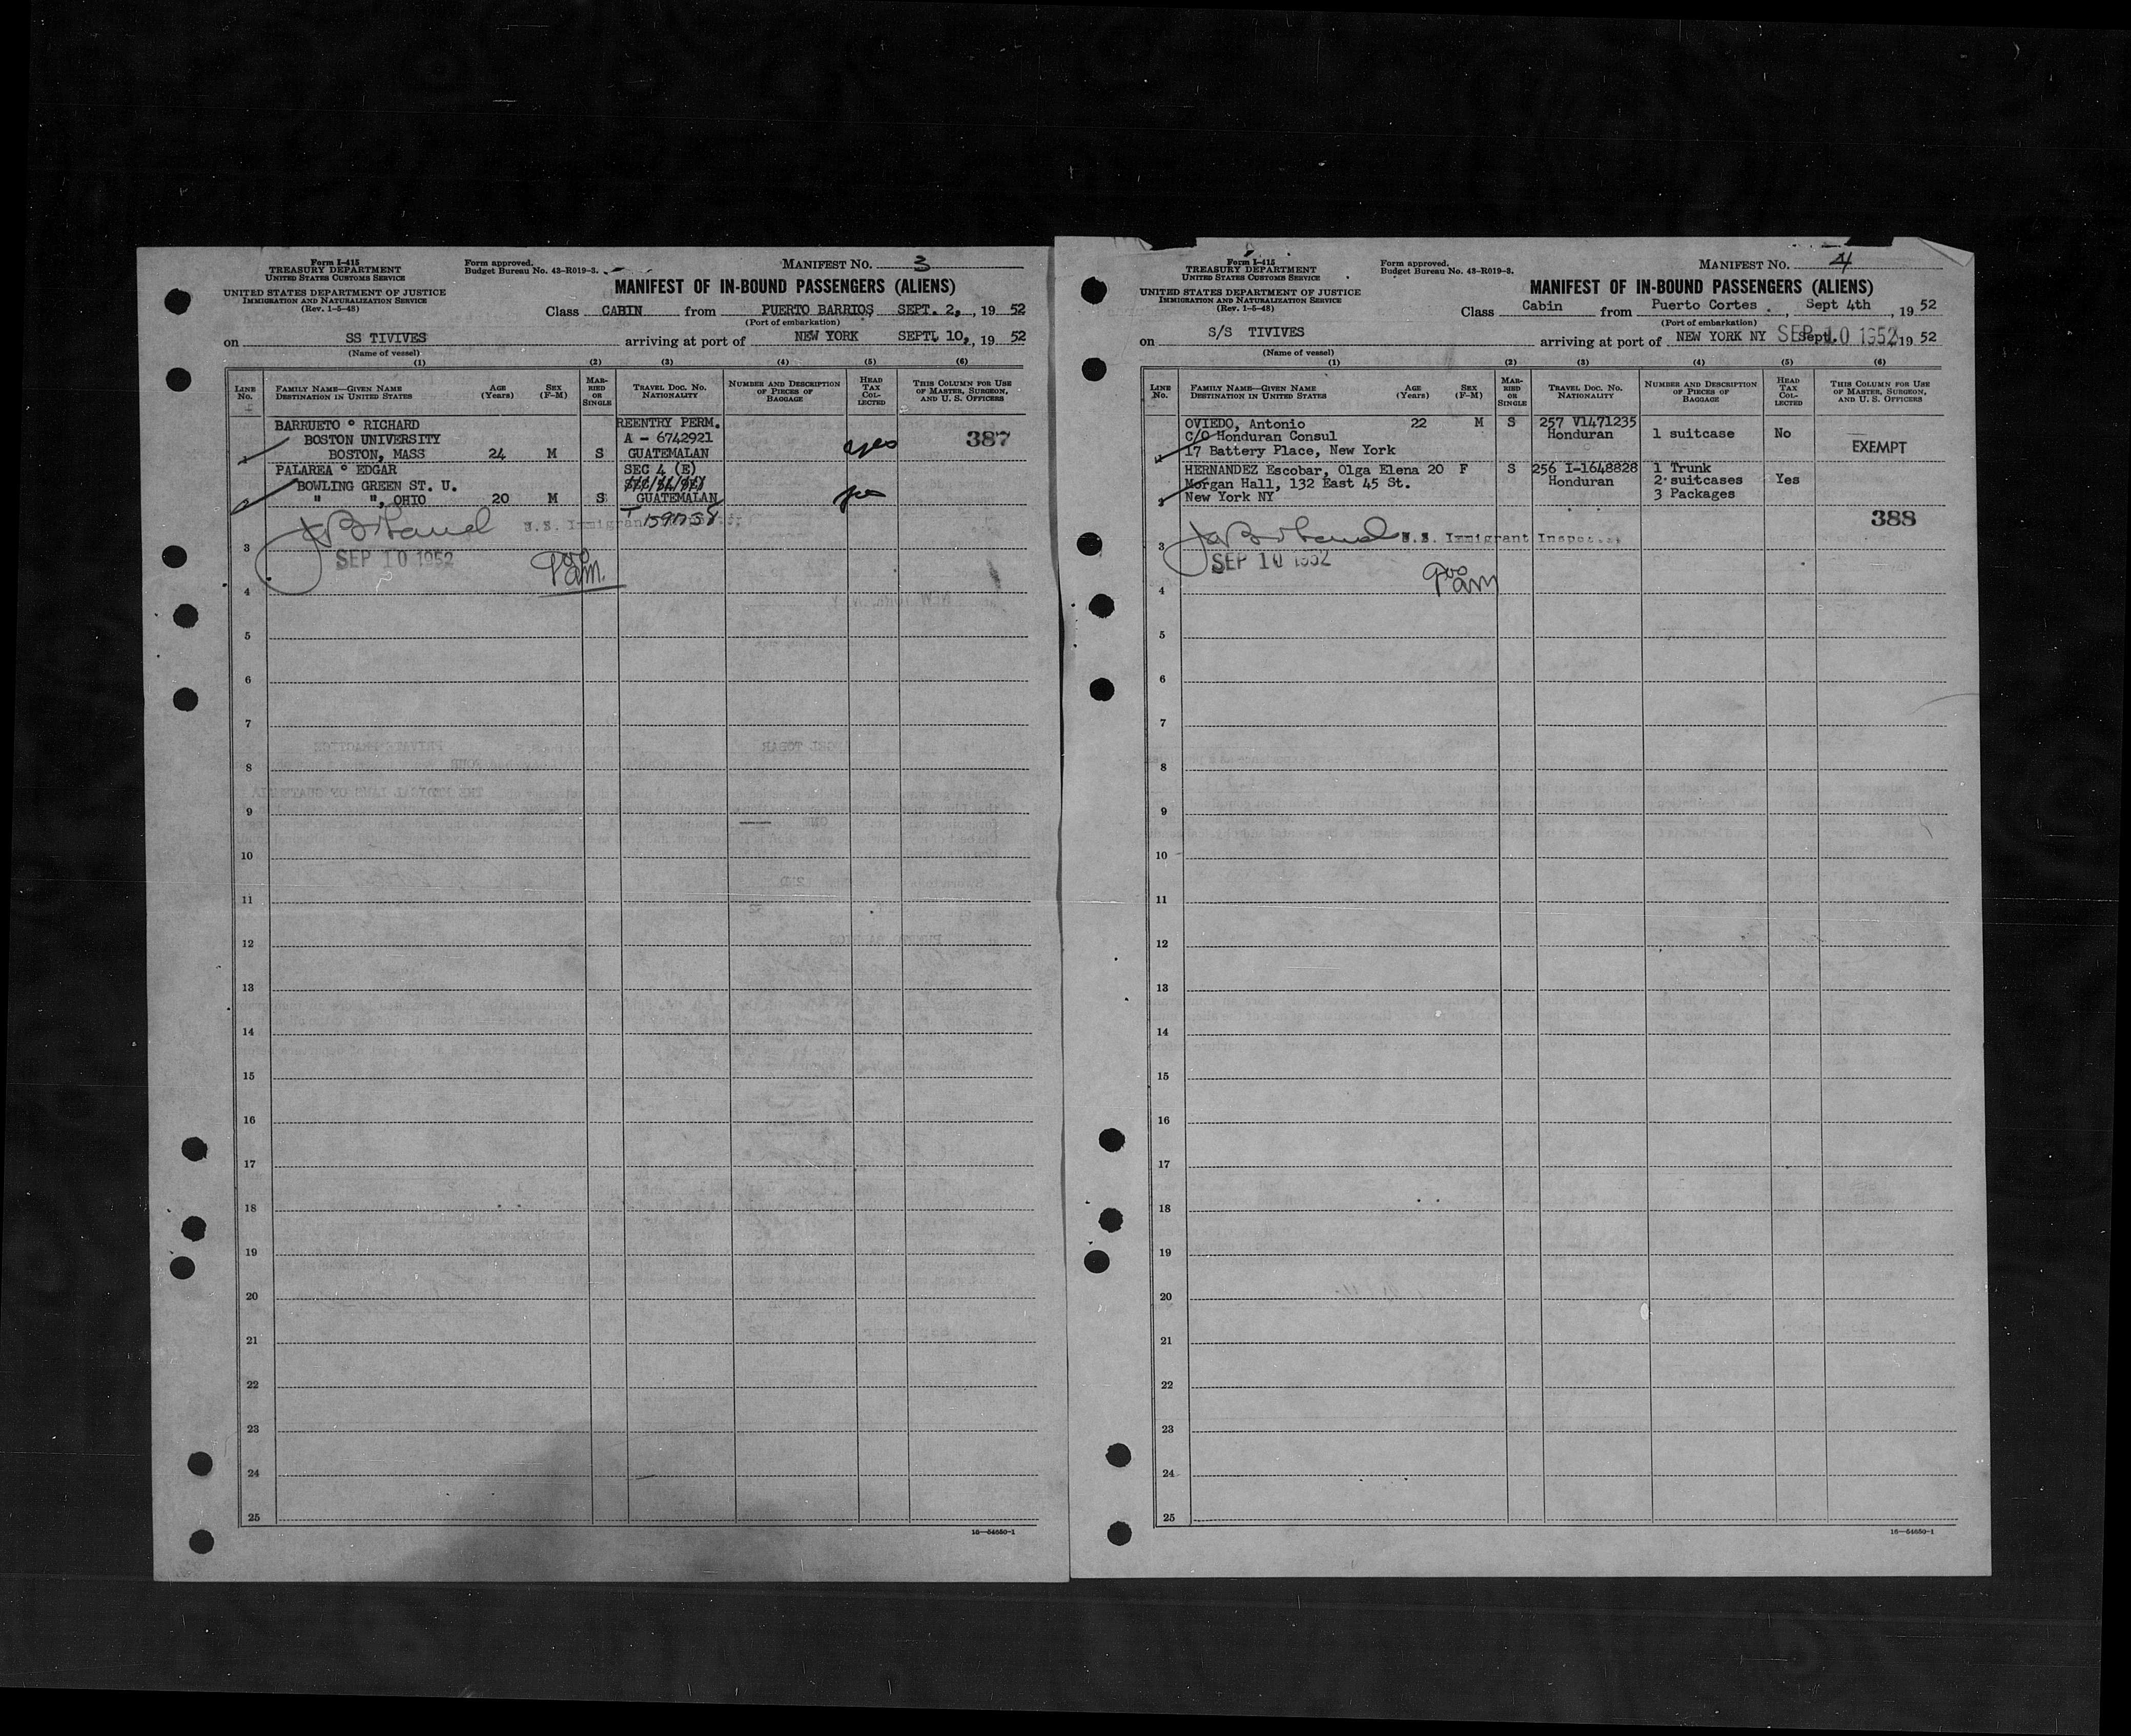 Form I-415
TREASURY DEPARTMENT
UNITED STATES CUSTOMS SERVICE
UNITED STATES DEPARTMENT OF JUSTICE
IMMIGRATION AND NATURALIZATION SERVICE
(Rev. 1-5-48)
Form approved.
Budget Bureau No. 43-R019-3.
MANIFEST NO. 3
MANIFEST OF IN-BOUND PASSENGERS (ALIENS)
Class CABIN from PUERTO BARRIOS, SEPT. 2, , 19 52
(Port of embarkation)
on SS TIVIVES arriving at port of NEW YORK SEPT. 10, , 19 52
(Name of vessel)
(1) (2) (3) (4) (5) (6)
LINE No. FAMILY NAME—GIVEN NAME DESTINATION IN UNITED STATES AGE (Years) SEX (F-M) MARRIED OR SINGLE TRAVEL DOC. NO. NATIONALITY NUMBER AND DESCRIPTION OF PIECES OF BAGGAGE HEAD TAX COLLECTED THIS COLUMN FOR USE OF MASTER, SURGEON, AND U. S. OFFICERS
BARRUETO ° RICHARD REENTRY PERM.
BOSTON UNIVERSITY A - 6742921 yes 387
1 BOSTON, MASS 24 M S GUATEMALAN
PALAREA ° EDGAR SEC 4 (E)
BOWLING GREEN ST. U.
2 " ", OHIO 20 M S GUATEMALAN yes
U.S. Immigrant
3 SEP 10 1952 900 am.
4
5
6
7
8
9
10
11
12
13
14
15
16
17
18
19
20
21
22
23
24
25
16—54650-1
Form I-415
TREASURY DEPARTMENT
UNITED STATES CUSTOMS SERVICE
UNITED STATES DEPARTMENT OF JUSTICE
IMMIGRATION AND NATURALIZATION SERVICE
(Rev. 1-5-48)
Form approved.
Budget Bureau No. 43-R019-3.
MANIFEST NO. 4
MANIFEST OF IN-BOUND PASSENGERS (ALIENS)
Class Cabin from Puerto Cortes , Sept 4th , 19 52
(Port of embarkation)
on S/S TIVIVES arriving at port of NEW YORK NY Sept. SEP 10 1952 , 19 52
(Name of vessel)
(1) (2) (3) (4) (5) (6)
LINE No. FAMILY NAME—GIVEN NAME DESTINATION IN UNITED STATES AGE (Years) SEX (F-M) MARRIED OR SINGLE TRAVEL DOC. NO. NATIONALITY NUMBER AND DESCRIPTION OF PIECES OF BAGGAGE HEAD TAX COLLECTED THIS COLUMN FOR USE OF MASTER, SURGEON, AND U. S. OFFICERS
OVIEDO, Antonio 22 M S 257 V1471235
C/O Honduran Consul Honduran 1 suitcase No
1 17 Battery Place, New York EXEMPT
HERNANDEZ Escobar, Olga Elena 20 F S 256 I-1648828 1 Trunk
Morgan Hall, 132 East 45 St. Honduran 2 suitcases Yes
2 New York NY 3 Packages
388
U.S. Immigrant Inspector
3 SEP 10 1952
900 am
4
5
6
7
8
9
10
11
12
13
14
15
16
17
18
19
20
21
22
23
24
25
16—54650-1